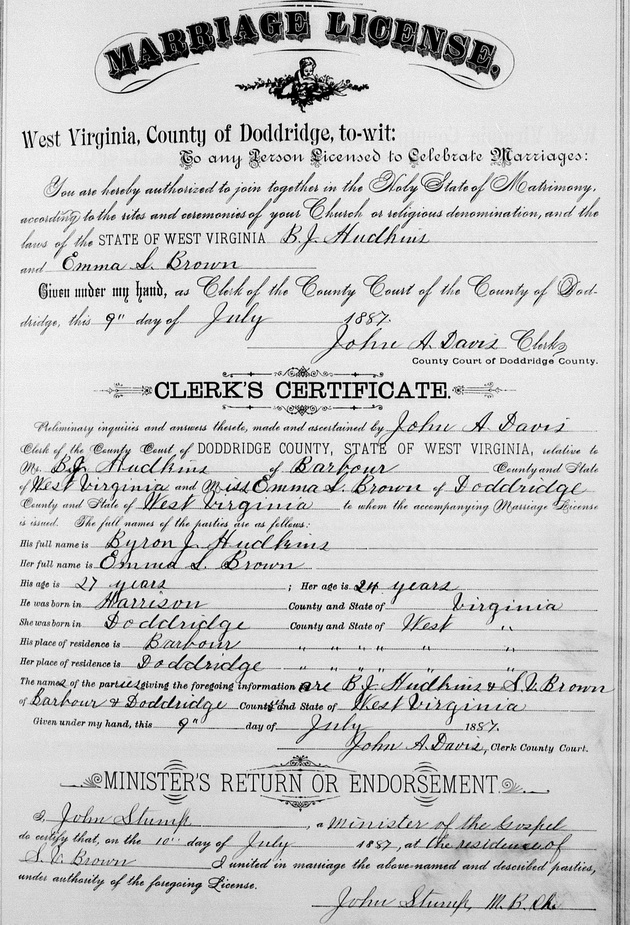 MARRIAGE LICENSE.
West Virginia, County of Doddridge, to-wit:
To any Person Licensed to Celebrate Marriages:
You are hereby authorized to join together in the Holy State of Matrimony,
according to the rites and ceremonies of your Church or religious denomination, and the
laws of the STATE OF WEST VIRGINIA B. J. Hudkins
and Emma S. Brown
Given under my hand, as Clerk of the County Court of the County of Dod-
dridge, this 9" day of July 1887.
John A. Davis Clerk,
County Court of Doddridge County.
CLERK'S CERTIFICATE.
Preliminary inquiries and answers thereto, made and ascertained by John A. Davis
Clerk of the County Court of DODDRIDGE COUNTY, STATE OF WEST VIRGINIA, relative to
Mr. B. J. Hudkins of Barbour County and State
of West Virginia and Miss Emma S. Brown of Doddridge
County and State of West Virginia to whom the accompanying Marriage License
is issued. The full names of the parties are as follows:
His full name is Byron J. Hudkins
Her full name is Emma S. Brown
His age is 27 years ; Her age is 24 years
He was born in Harrison County and State of Virginia
She was born in Doddridge County and State of West "
His place of residence is Barbour " " " " "
Her place of residence is Doddridge " " " " "
The names of the parties giving the foregoing information are B. J. Hudkins & S. V. Brown
of Barbour & Doddridge County and State of West Virginia
Given under my hand, this 9" day of July 1887.
John A. Davis, Clerk County Court.
MINISTER'S RETURN OR ENDORSEMENT.
I, John Stump, a Minister of the Gospel
do certify that, on the 10" day of July 1887, at the residence of
S. V. Brown I united in marriage the above-named and described parties,
under authority of the foregoing License.
John Stump, M. B. Ch.